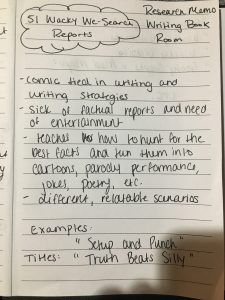 51 Wacky We-Search
Reports
Research Memo
Writing Book
Room
- comic tied in writing and
writing strategies
- Sick of factual reports and need
of entertainment
- teaches how to hunt for the
best facts and turn them into
cartoons, parody performance,
jokes, poetry, etc.
- different, relatable scenarios
Examples:
"Setup and Punch"
Titles: "Truth Beats Silly"